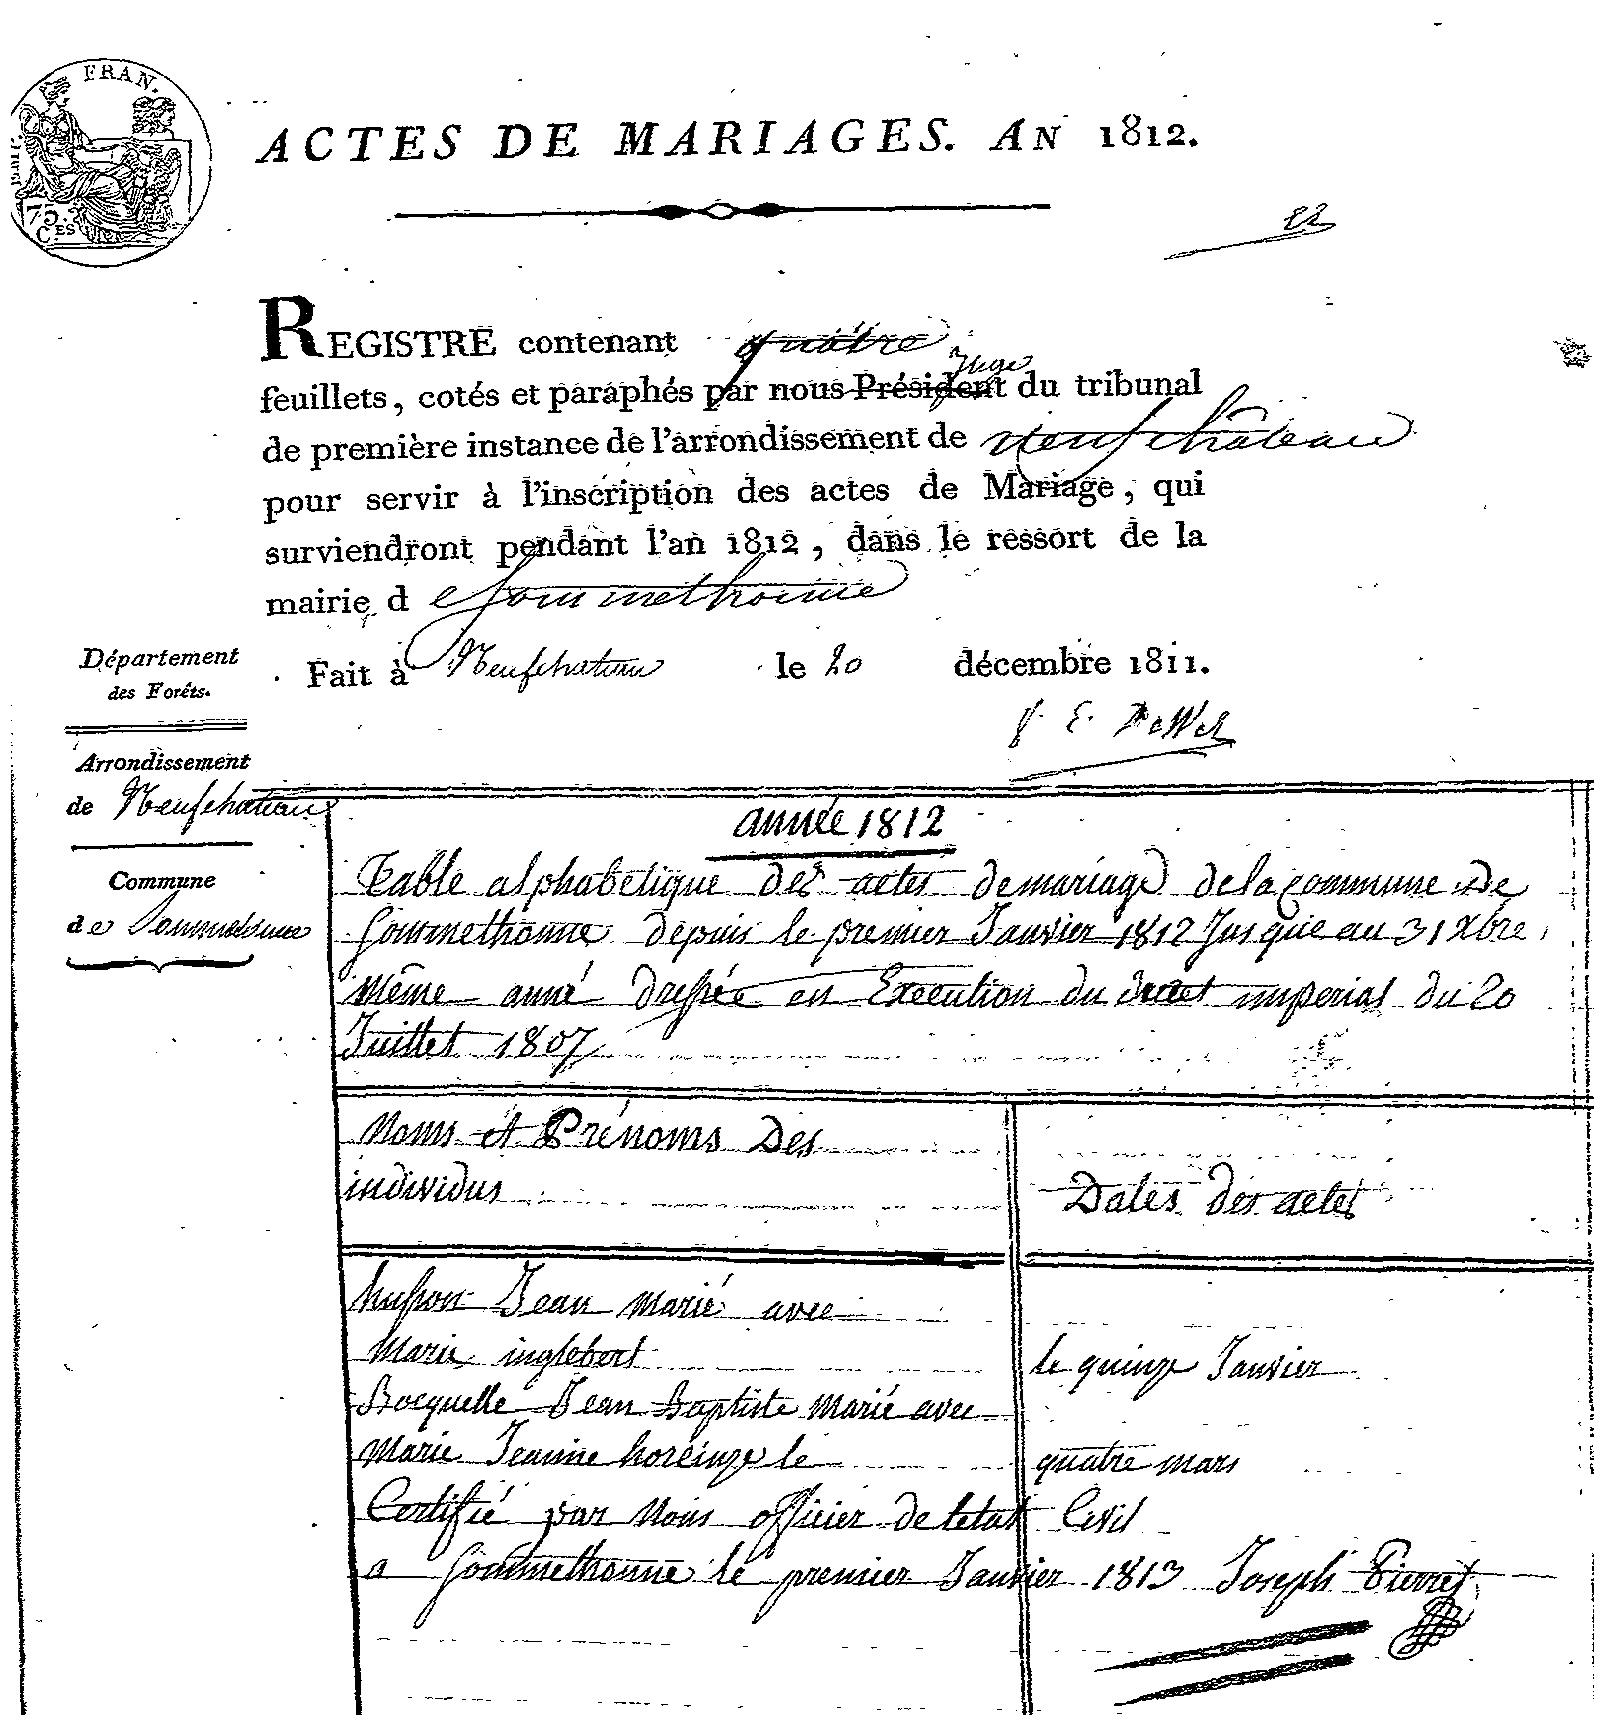 FRAN.
75
CES
ACTES DE MARIAGES. AN 1812.
REGISTRE contenant quatre
Juge
feuillets, cotés et paraphés par nous Président du tribunal
de première instance de l'arrondissement de neufchâteau
pour servir à l'inscription des actes de Mariage, qui
surviendront pendant l'an 1812, dans le ressort de la
mairie d e Sommethonne
Fait à Neufchateau le 20 décembre 1811.
Département
des Forêts.
Arrondissement
de Neufchateau
Commune
de Sommethonne
année 1812
Table alphabetique des actes de mariage de la commune De
Sommethonne depuis le premier Janvier 1812 Jusque au 31 Xbre
même anné dressée en Execution du decret imperial du 20
Juillet 1807
Noms et Prénoms Des
individus
Dates des actes
husson Jean marié avec
Marie inglebert le quinze Janvier
Bocquelle Jean Baptiste marié avec
Marie Jeanne horeinze le quatre mars
Certifié par Nous officier de letat Civil
a Sommethonne le premier Janvier 1813 Joseph Pierret